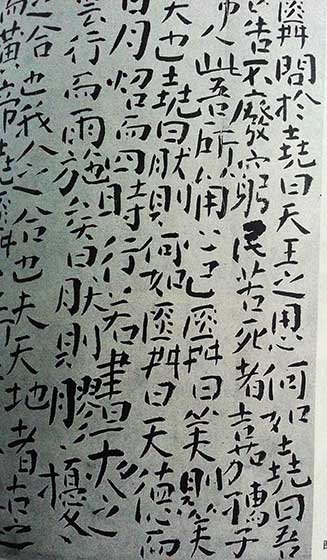 舜問於堯曰天王之用心何如堯曰吾
告不廢窮民苦死者嘉孺子
人此吾所以用心已舜曰美則美
大也堯曰然則何如舜曰天德而
日月照而四時行若晝夜之
雲行而雨施矣曰然則膠〻擾〻
之合也我人之合也夫天地者古之
黃帝堯舜之